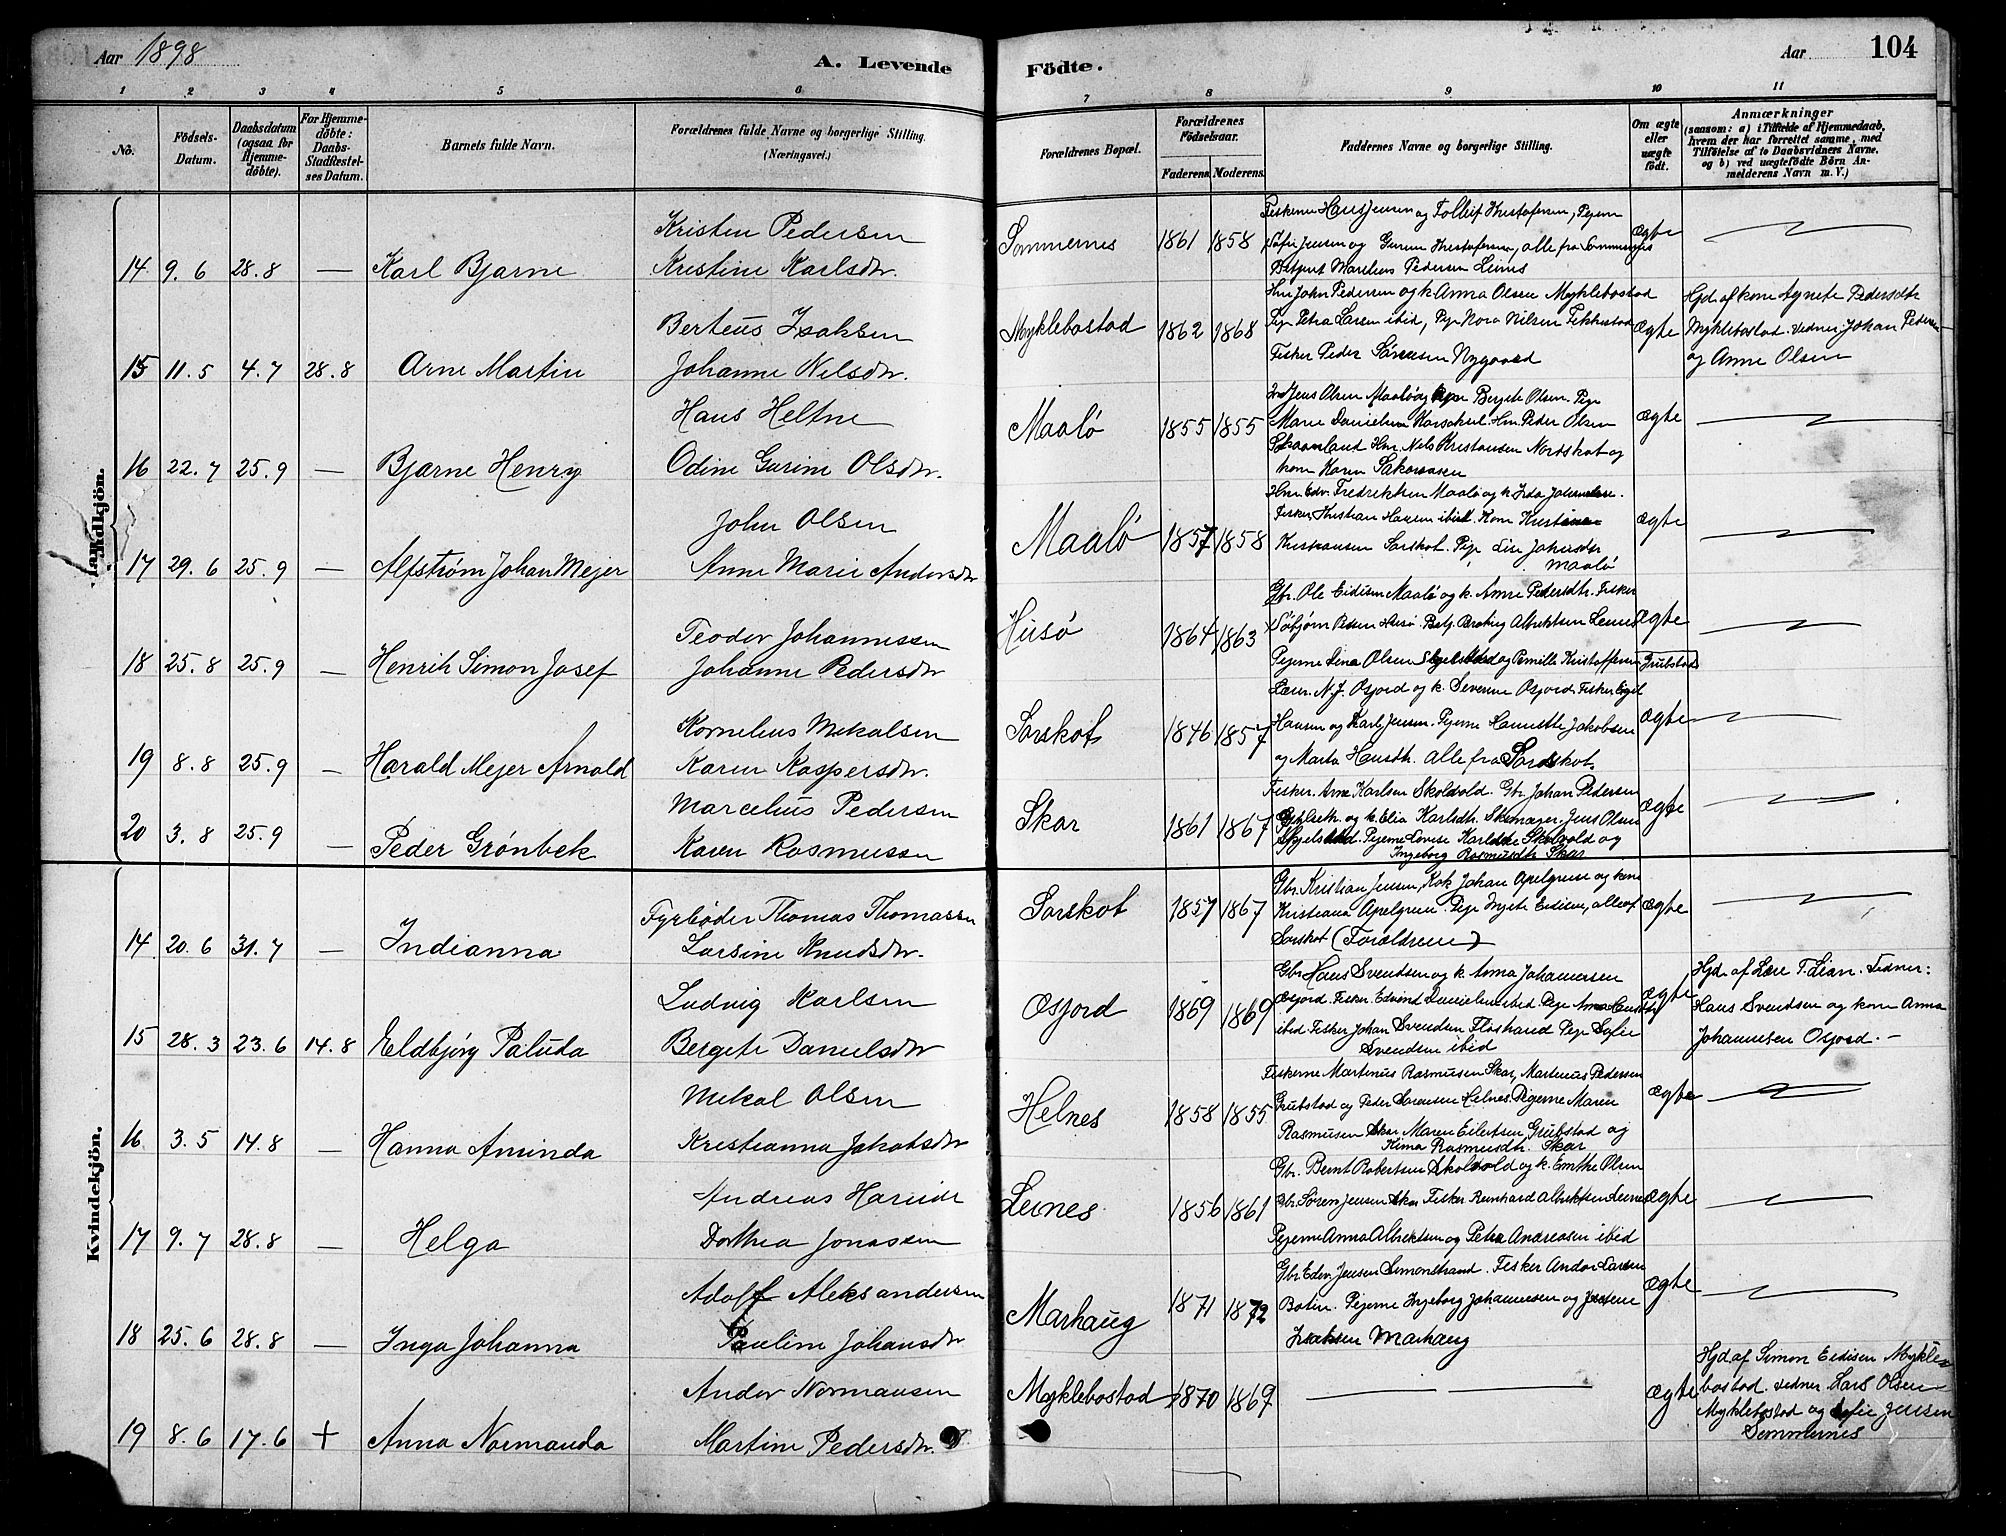 Aar 1898
A. Levende
Födte.
Aar
104
1 2 3 4 5 6 7 8 9 10 11
No.
Födsels-Datum.
Daabsdatum (ogsaa for Hjemme-döbte).
For Hjemme-döbte: Daabs-Stadfæstel-ses Datum.
Barnets fulde Navn.
Forældrenes fulde Navne og borgerlige Stilling. (Næringsvei.)
Forældrenes Bopæl.
Forældrenes Födselsaar.
Faderens. Moderens.
Faddernes Navne og borgerlige Stilling.
Om ægte eller uægte födt.
Anmærkninger
(saasom: a) i Tilfælde af Hjemmedaab, hvem der har forrettet samme, med Tilföielse af to Daabsvidners Navne. og b) ved uægtefödte Börn An-melderens Navn m. V.)
Mandkjön.
Kristen Pedersen
14 9.6 28.8 — Karl Bjarne Kristine Karlsdtr.
Sommernes 1861 1858 ægte
Fiskerne Hans Jensen og Tollef Kristofersen, Pejerne
Sofie Jensen og Gurine Kristofersen, alle fra Sommernes
Betjent Marelius Pedersen Leines
Berteus Isaksen
15 11.5 4.7 28.8 Arne Martin Johanne Nilsdtr.
Myklebostad 1862 1868 ægte
Hm John Pedersen og k. Anna Olsen Myklebostad
Pige Petra Larsen ibid, Pige Nora Nilsen
Fisker Peder Sørensen Nygaard
Hjd. af kone Agnete Pedersdtr
Myklebostad. Vidner: Johan Pedersen
og Anne Olsen
Hans Heltne
16 22.7 25.9 — Bjarne Henry Odine Gurine Olsdtr.
Maalö 1855 1855 ægte
Jens Olsen Maalö og kone Bergete Olsen. Pige
Marie Danielsen Hm. Peder Olsen
Skaanland Hm. Nels Kristensen Nordskot og
kone Karen
John Olsen
17 29.6 25.9 — Alfstrøm Johan Mejer Anne Marie Andersdtr
Maalö 1857 1858 ægte
Hm. Edv. Fredriksen Maalö og k. Ida
Fisker Kristian Hansen ibid. Kone Kristine
Kristiansen Sørskot. Pige Lise
Maalö
Teodor Johannessen
18 25.8 25.9 — Henrik Simon Josef Johanne Pedersdtr
Husö 1864 1863 ægte
Gbr. Ole Eidisen Maalö og k. Anne Pedersdtr. Fisker
Torbjørn Husö. Albrektsen Leines
Pejerne Lina Olsen Skjelstad og Pernille Kristoffersen Grubstad
Kornelius Mekalsen
19 8.8 25.9 — Harald Mejer Arnold Karen Kaspersdtr.
Sørskot 1846 1857 ægte
Lærer. N. J. Osjord og k. Severine Osjord. Fisker
Hansen og Karl Jensen. Pejerne Jakobsen
og Marta Hansdtr. alle fra Sørskot.
Marcelius Pedersen
20 3.8 25.9 — Peder Grønbek Karen Rasmussen
Skar 1861 1867 ægte
Fisker. Arne Karlsen Skolvold. Gbr. Johan Pedersen
og k. Elia Karlsdtr. Jens Olsen
Skjelstad. Pejerne Lovise Karlsdtr Skolvold og
Ingeborg Rasmusdtr Skar
Kvindekjön.
Fyrbøder Thomas Thomassen
14 20.6 31.7 — Indianna Larsine Knudsdtr.
Sørskot 1857 1867 ægte
Gbr. Kristian Jensen, Kok Johan Apelgren og kone
Kristiana Apelgren. Pige Ingete Eidisen, alle af
Sørskot (Forældrene)
Ludvig Karlsen
15 28.3 23.6 14.8 Eldbjørg Paluda Bergete Danielsdtr
Osjord 1869 1869 ægte
Gbr. Hans Svendsen og k. Anna Johannesen
Osjord. Fisker Edvind Danielsen ibid Pige
ibid Fisker Johan Svendsen Pige Sofie
Svendsen ibid
Hjd. af Lære T. Lian. Vidner:
Hans Svendsen og kone Anna
Johannesen Osjord. —
Mekal Olsen
16 3.5 14.8 — Hanna Aminda Kristianna Jakobsdtr
Helnes 1858 1855 ægte
Fiskerne Martinus Rasmussen Skar, Martinus Pedersen
Grubstad og Peder Sørensen Helnes Pigerne Maren
Rasmusen Skar Maren Eilertsen Grubstad og
Rasmusdtr. Skar
Andreas
17 9.7 28.8 — Helga Dorthea Jonassen
Leines 1856 1861 ægte
Gbr. Bernt Robertsen Skolvold og k. Emthe Olsen
Gbr. Søren Jensen Skar Fisker Reinhard Albrektsen Leines
Pejerne Anna Albrektsen og Petra Andreasen ibid
Adolf Aleksandersen
18 25.6 28.8 — Inga Johanna Pauline Johansdtr
Marhaug 1871 1872 ægte
Gbr. Edev. Jensen Simonstrand. Fisker Andor Larsen
Botin. Pejerne Ingeborg Johannesen og
Isaksen Marhaug
Andor Normansen
19 8.6 17.6 + Anna Normanda Martine Pedersdtr.
Myklebostad 1870 1869 ægte
Hjd. af Simon Eidisen Mykle-
bostad. Vidner Lars Olsen
Myklebostad og Sofie Jensen
Sommernes